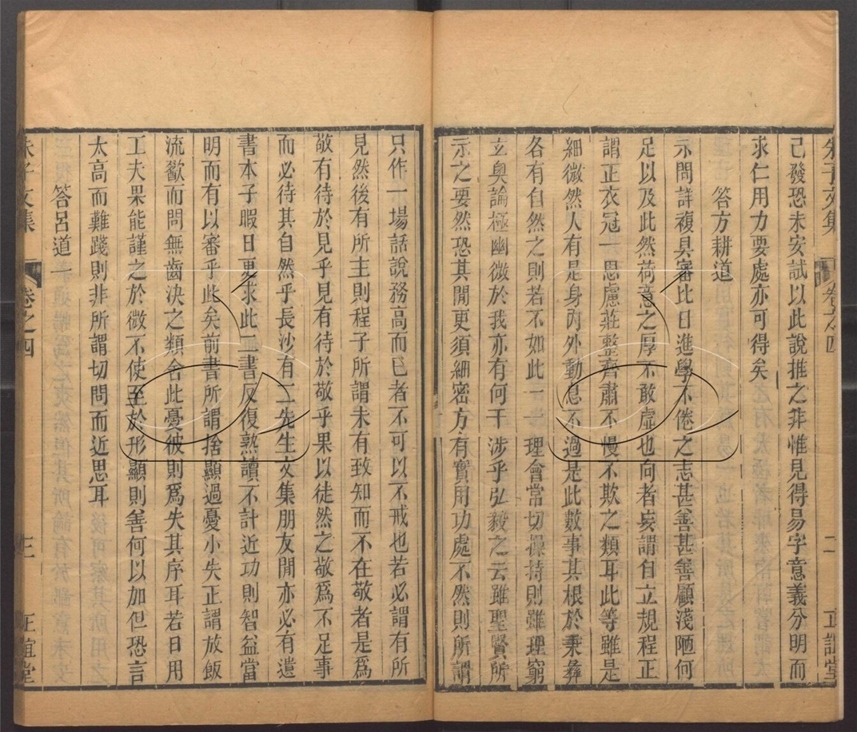 朱子文集 卷之四 二 正誼堂
已發恐未安試以此說推之非惟見得易字意義分明而
求仁用力要處亦可得矣
答方耕道
示問詳複具審比日進學不倦之志甚善甚善顧淺陋何
足以及此然荷意之厚不敢虛也向者妄謂自立規程正
謂正衣冠一思慮莊整齊肅不慢不欺之類耳此等雖是
細微然人有是身內外動息不過是此數事其根於秉彝
各有自然之則若不如此一一理會常切操持則雖理窮
玄奧論極幽微於我亦有何干涉乎弘毅之云雖聖賢所
示之要然恐其閒更須細密方有實用功處不然則所謂
只作一場話說務高而已者不可以不戒也若必謂有所
見然後有所主則程子所謂未有致知而不在敬者是爲
敬有待於見乎見有待於敬乎果以徒然之敬爲不足事
而必待其自然乎長沙有二先生文集朋友閒亦必有遺
書本子暇日更求此二書反復熟讀不計近功則智益當
明而有以審乎此矣前書所謂捨顯過憂小失正謂放飯
流歠而問無齒決之類舍此憂彼則爲失其序耳若日用
工夫果能謹之於微不使至於形顯則善何以加但恐言
太高而難踐則非所謂切問而近思耳
答呂道一
朱子文集 卷之四 三 正誼堂